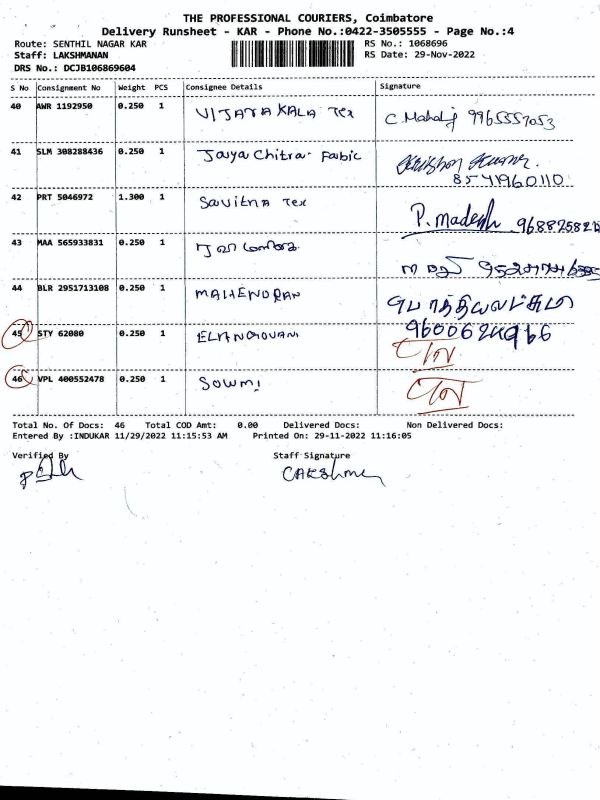 THE PROFESSIONAL COURIERS, Coimbatore
Delivery Runsheet - KAR - Phone No.:0422-3505555 - Page No.:4
Route: SENTHIL NAGAR KAR
Staff: LAKSHMANAN
DRS No.: DCJB106869604
RS No.: 1068696
RS Date: 29-Nov-2022
S No Consignment No Weight PCS Consignee Details Signature
40 AWR 1192950 0.250 1 VIJAYA KALA Tex 9965557053
41 SLM 308288436 0.250 1 Jaya Chitra Fabic
8541960110
42 PRT 5046972 1.300 1 Savitha Tex P. madesh
43 MAA 565933831 0.250 1
44 BLR 2951713108 0.250 1 MAHENDRAN
45 STY 62080 0.250 1 ELANGOVAN
46 VPL 400552478 0.250 1 SOWMI
Total No. Of Docs: 46 Total COD Amt: 0.00 Delivered Docs: Non Delivered Docs:
Entered By :INDUKAR 11/29/2022 11:15:53 AM Printed On: 29-11-2022 11:16:05
Verified By Staff Signature